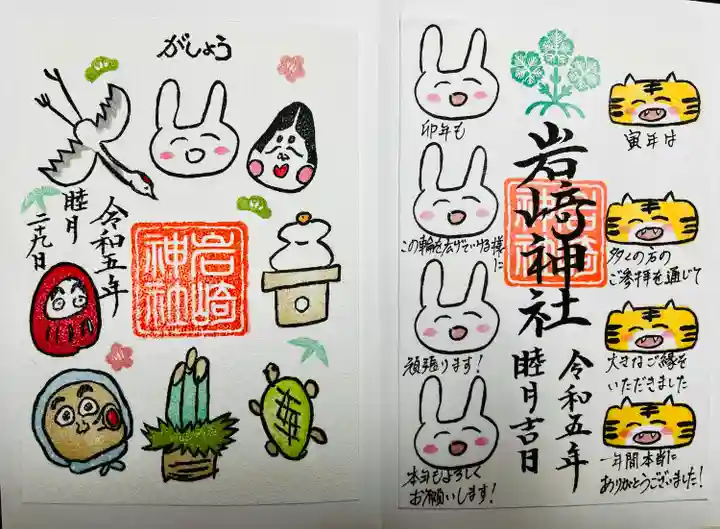 がしょう
令和五年
睦月
二十九日
岩崎
神社
岩﨑神社
岩崎
神社
令和五年
睦月吉日
寅年は
多くの方の
ご参拝を通じて
大きなご縁を
いただきました
一年間本当に
ありがとうございました!
卯年も
この輪を広げていける様
に
頑張ります!
本年もよろしく
お願いします!